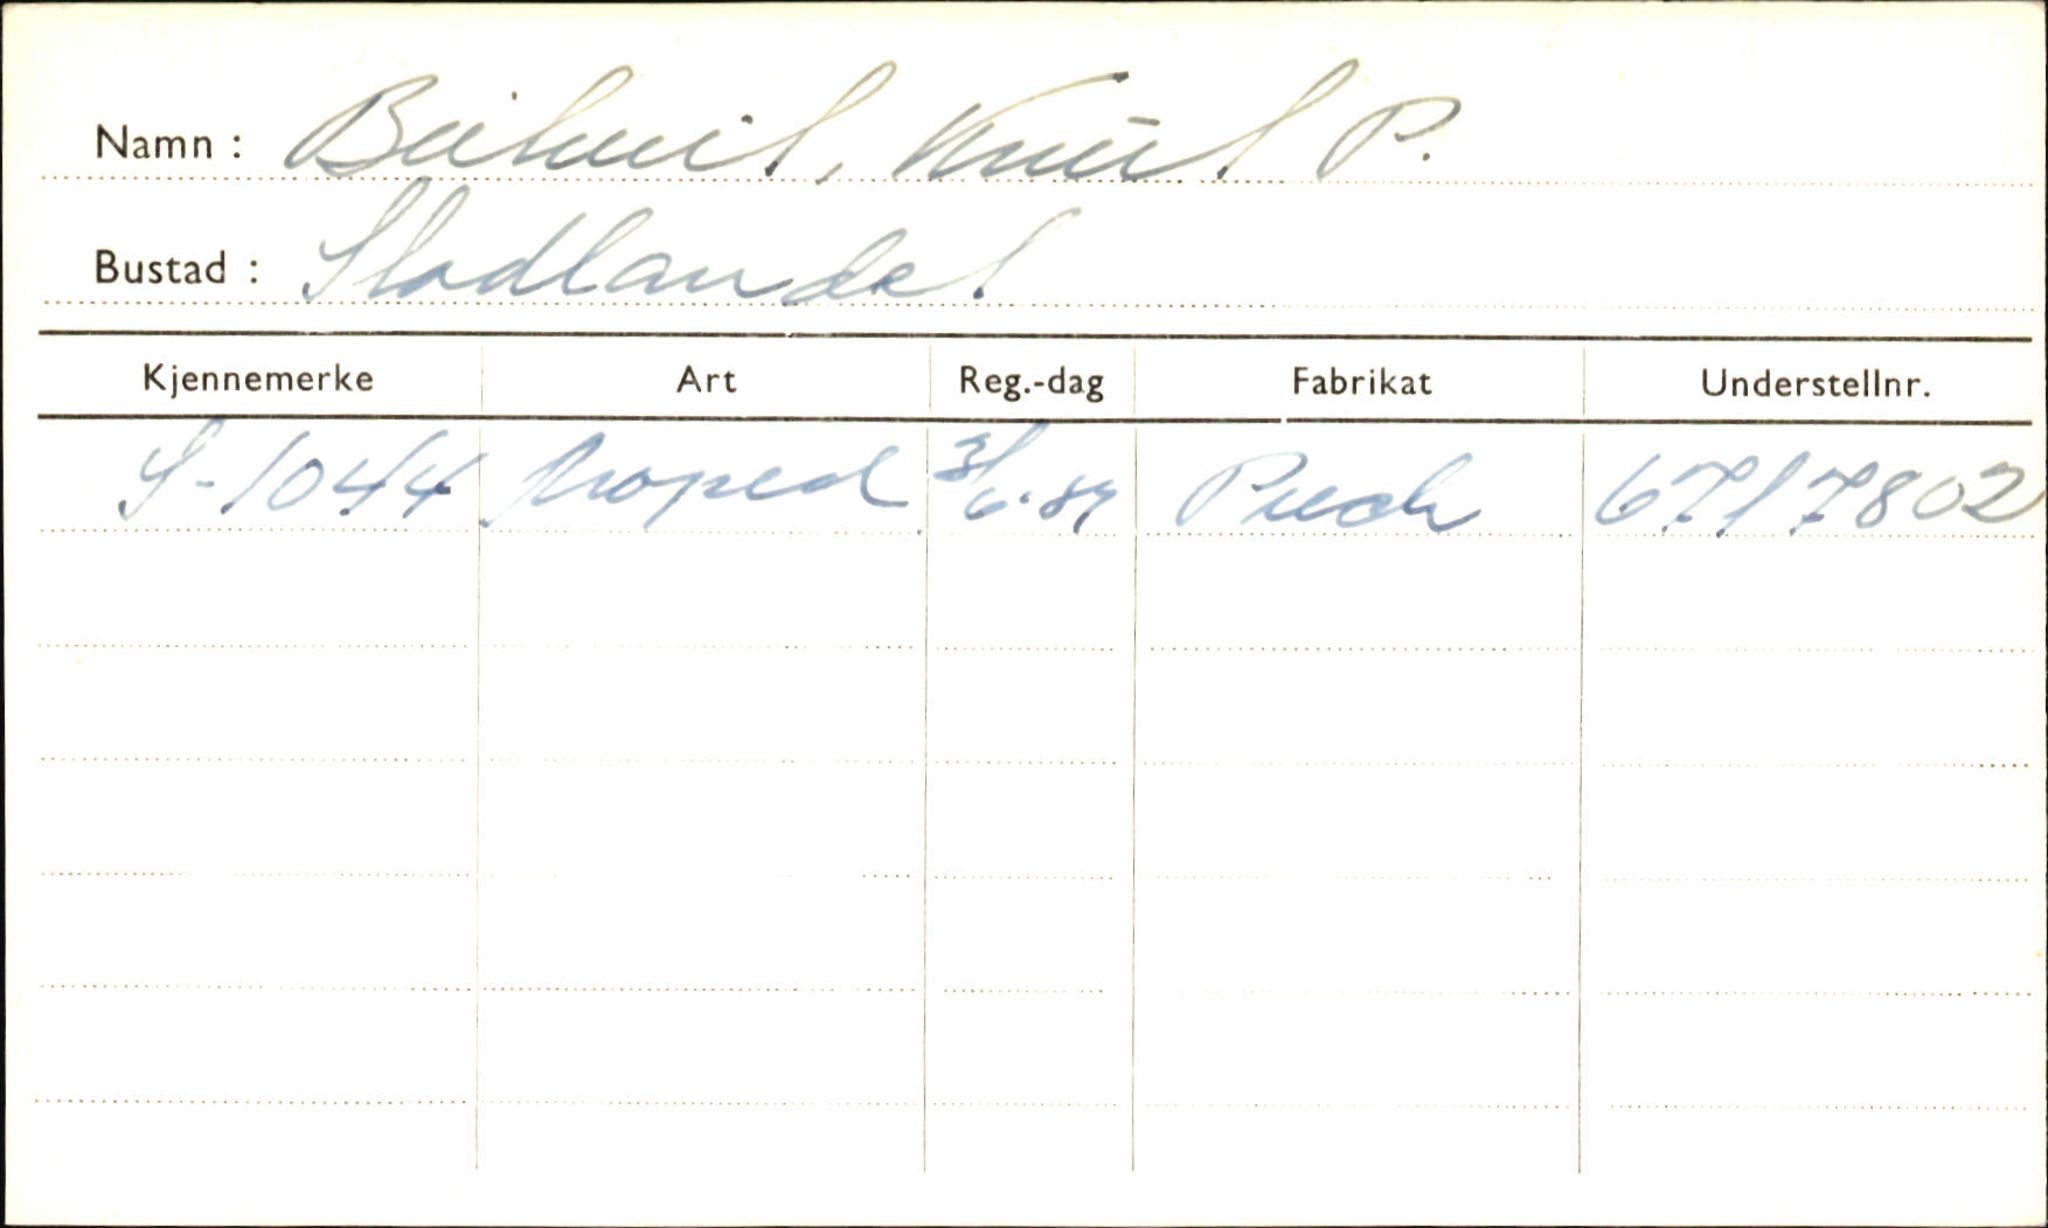 Namn : Beitveit, Knut P.
Bustad : Stadlandet
Kjennemerke Art Reg.-dag Fabrikat Understellnr.
S-1044 Moped 3/6.89 Puch 6717802